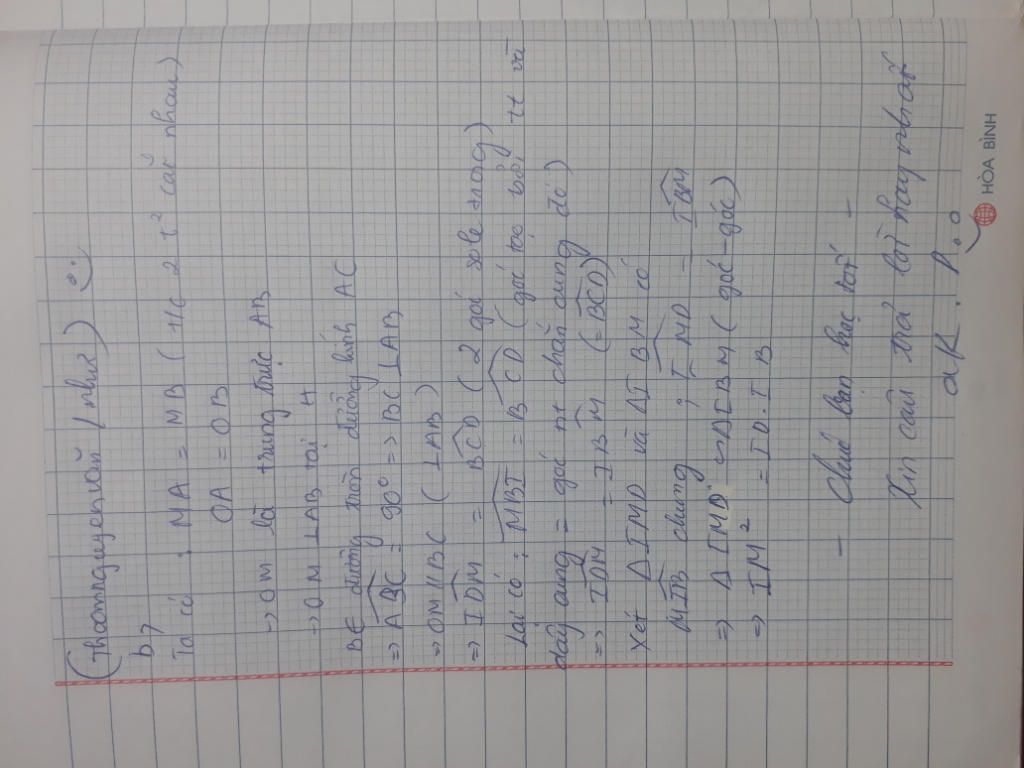 (thcomtquyenoan / nhu2)
b7
Ta có : MA = MB ( t/c 2 t² cắt nhau )
OA = OB
→ OM là trung trực AB
→ OM ⊥ AB tại H
BE đường tròn đường kính AC
⇒ ABC = 90° => BC ⊥ AB
→ OM // BC ( ⊥ AB )
⇒ IDM = BCD ( 2 góc sole trong )
Lại có : MBI = BCD ( góc tạo bởi tt và
dây cung = góc nt chắn cung đó )
⇒ IDM = IBM ( = BCD )
Xét Δ IMD và Δ IBM có
MIB chung ; IMD = IBM
⇒ Δ IMD ∽ Δ IBM ( góc - góc )
⇒ IM² = ID . IB
— Chúc bạn học tốt —
Xin câu trả lời hay nhất
ak . P
HÒA BÌNH